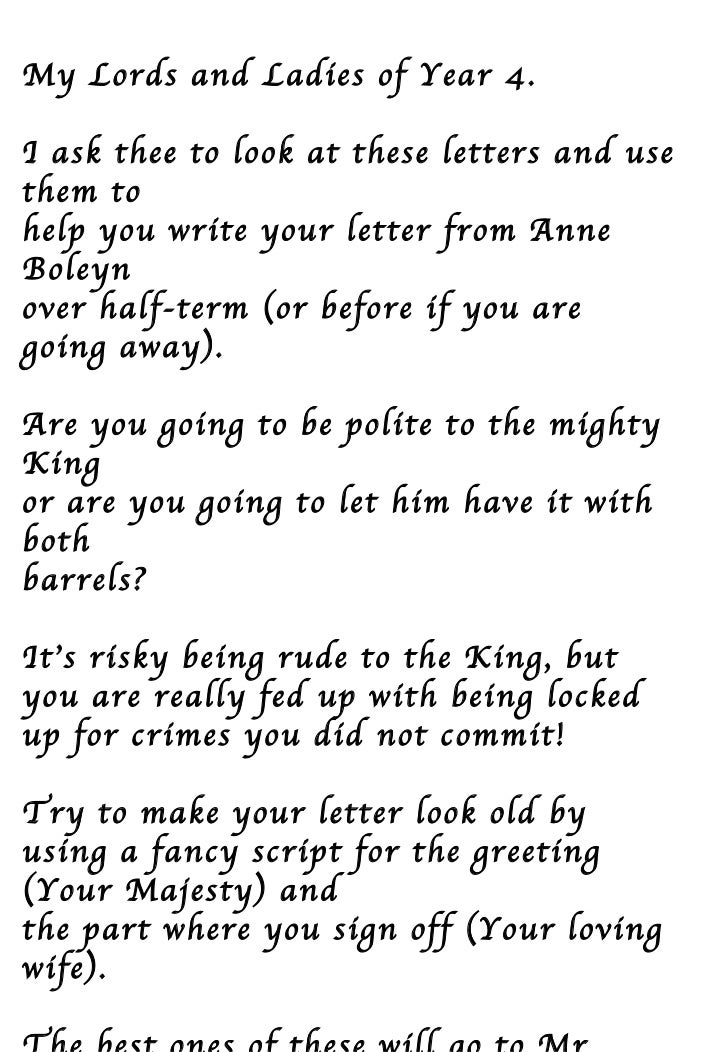 My Lords and Ladies of Year 4.
I ask thee to look at these letters and use
them to
help you write your letter from Anne
Boleyn
over half-term (or before if you are
going away).
Are you going to be polite to the mighty
King
or are you going to let him have it with
both
barrels?
It's risky being rude to the King, but
you are really fed up with being locked
up for crimes you did not commit!
Try to make your letter look old by
using a fancy script for the greeting
(Your Majesty) and
the part where you sign off (Your loving
wife).
The best ones of these will go to Mr